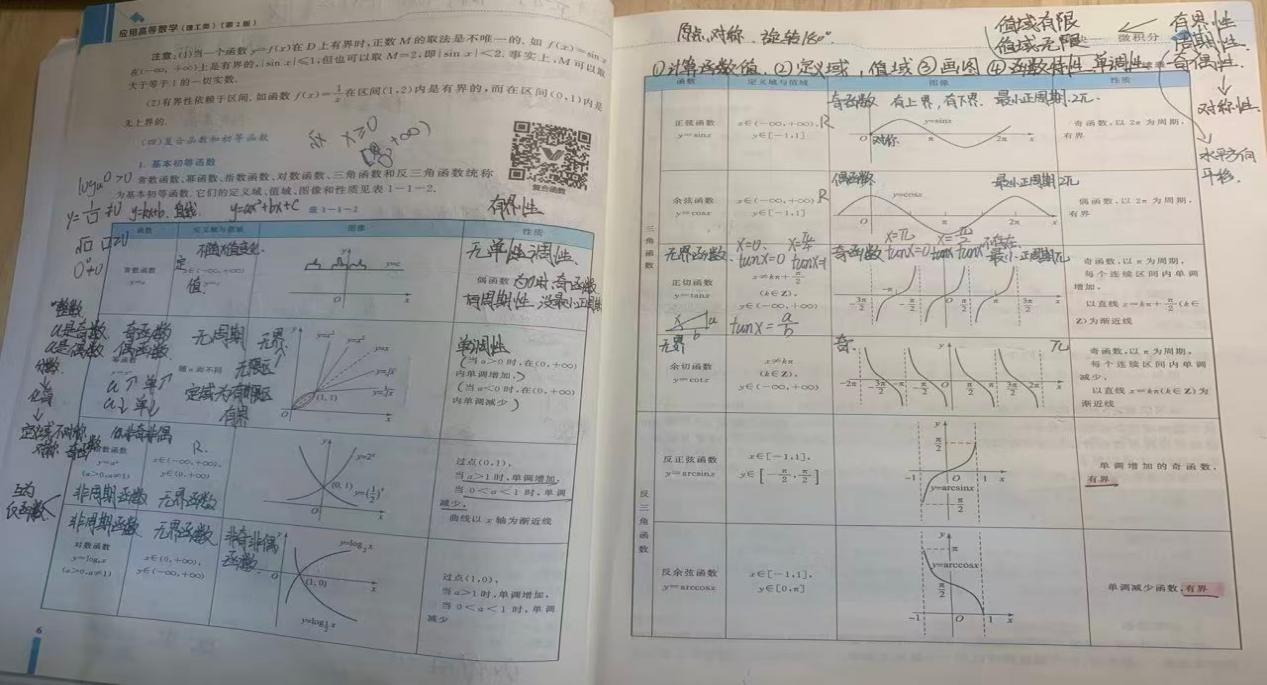 应用高等数学(理工类)(第2版)
注意:(1)当一个函数 y=f(x)在 D 上有界时,正数 M 的取法是不唯一的. 如 f(x)=sin x
在(-∞, +∞)上是有界的, |sin x|≤1,但也可以取 M=2,即|sin x|<2. 事实上, M 可以取
大于等于 1 的一切实数.
(2)有界性依赖于区间. 如函数 f(x)=1/x 在区间(1,2)内是有界的,而在区间(0,1)内是
无上界的.
(四)复合函数和初等函数
x≥0
+∞)
1. 基本初等函数
复合函数
常数函数、幂函数、指数函数、对数函数、三角函数和反三角函数统称
为基本初等函数. 它们的定义域、值域、图像和性质见表 1-1-2.
y=kx+b 直线 y=ax²+bx+c 表 1-1-2 有界性
函数 定义域与值域 图像 性质
常数函数
y=c
x∈(-∞,+∞)
y y=c O x
无单调性.
偶函数
有周期性,没最小正周期
整数
a是奇数 奇函数
a是偶数 偶函数
无周期 无界
幂函数
随 a 而不同
y=x³ y=x² y=x y=√x (1,1) O x
单调性
(当 a>0 时,在(0,+∞)
内单调增加,)
(当 a<0 时,在(0,+∞)
内单调减少)
有界
指数函数
y=aˣ
(a>0,a≠1)
R.
x∈(-∞,+∞),
y∈(0,+∞)
y=2ˣ y=(1/2)ˣ (0,1) O x
过点(0,1),
当 a>1 时,单调增加,
当 0<a<1 时,单调
减少,
曲线以 x 轴为渐近线
互为
反函数
非周期函数 无界函数
非周期函数 无界函数 非奇非偶
函数.
对数函数
y=logₐx
(a>0,a≠1)
x∈(0,+∞),
y∈(-∞,+∞)
y=log₂x (1,0) O x y=log½x
过点(1,0),
当 a>1 时,单调增加,
当 0<a<1 时,单调
减少
6
原点对称 旋转180°.
值域有限
值域无限
微积分
有界性
周期性.
奇偶性
①计算函数值, ②定义域, 值域 ③画图 ④函数特性 单调性.
对称性.
水平方向
平移.
函数 定义域与值域 图像 性质
三角函数
奇函数 有上界,有下界. 最小正周期.2π.
正弦函数
y=sinx
x∈(-∞,+∞), R
y∈[-1,1]
y=sinx O π 2π x
对称
奇函数, 以 2π 为周期,
有界
偶函数 最小正周期 2π
余弦函数
y=cosx
x∈(-∞,+∞), R
y∈[-1,1]
y=cosx O π 2π x
偶函数, 以 2π 为周期,
有界
无界函数. x=0.
tanx=0
奇函数
最小正周期π
正切函数
y=tanx
x≠kπ+π/2
(k∈Z),
y∈(-∞,+∞)
-3π/2 -π -π/2 O π/2 π 3π/2 x
奇函数, 以 π 为周期,
每个连续区间内单调
增加,
以直线 x=kπ+π/2(k∈
Z)为渐近线
tanx=a/b
无界
奇. π
余切函数
y=cotx
x≠kπ
(k∈Z),
y∈(-∞,+∞)
-2π -3π/2 -π -π/2 O π/2 π 3π/2 2π x
奇函数, 以 π 为周期,
每个连续区间内单调
减少,
以直线 x=kπ(k∈Z)为
渐近线
反三角函数
反正弦函数
y=arcsinx
x∈[-1,1],
y∈[-π/2,π/2]
y π/2 -1 O 1 x y=arcsinx -π/2
单调增加的奇函数,
有界
反余弦函数
y=arccosx
x∈[-1,1],
y∈[0,π]
y π y=arccosx π/2 -1 O 1 x
单调减少函数,有界